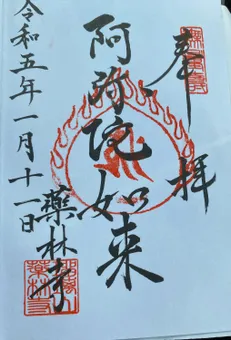 奉拝
阿弥陀如来
薬林寺
令和五年一月十一日